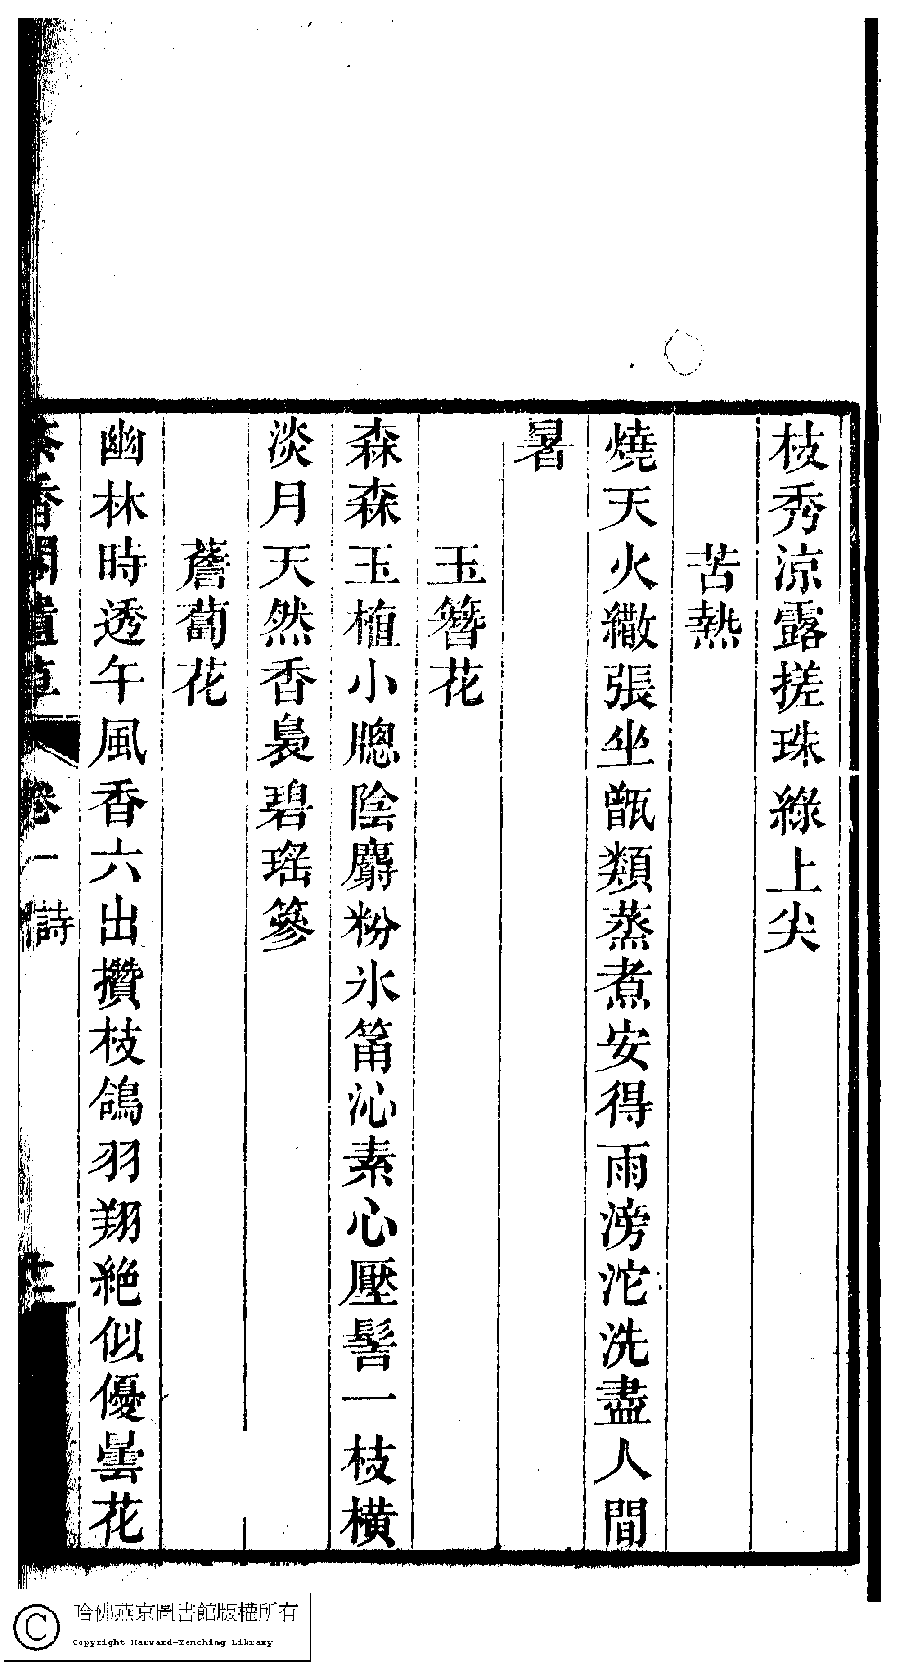 枝秀涼露搓珠綠上尖
苦熱
燒天火繖張坐甑類蒸煮安得雨滂沱洗盡人間
暑
玉簪花
森森玉植小牕陰麝粉氷筩沁素心壓髻一枝橫
淡月天然香裊碧瑤簪
薝蔔花
幽林時透午風香六出攢枝鴿羽翔絕似優曇花
香閣遺草
卷一
詩
哈佛燕京圖書館版權所有
Copyright Harvard-Yenching Library